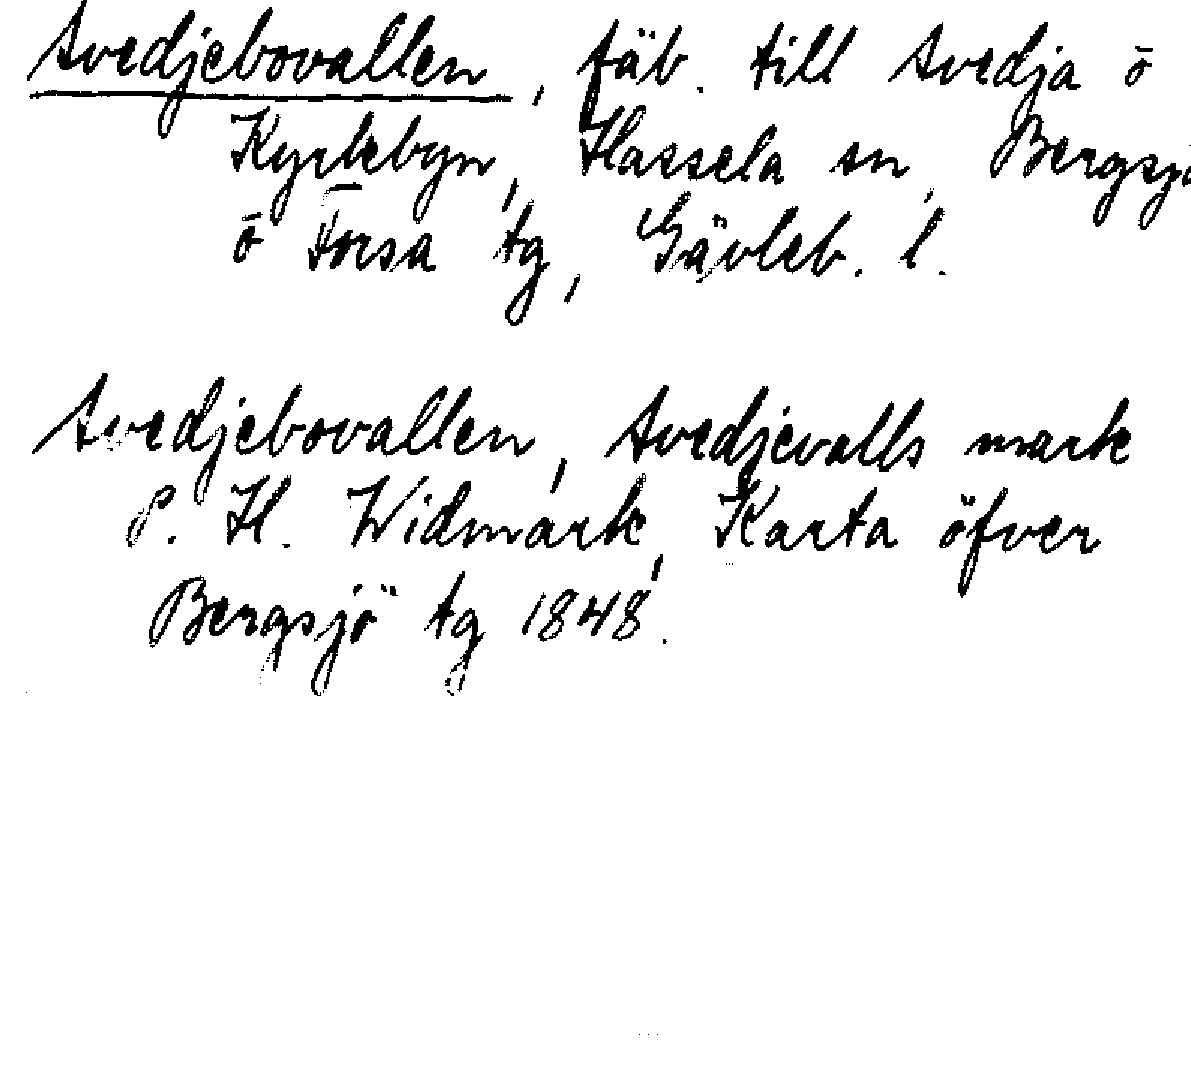 Svedjebovallen, fäb. till Svedja ō
Kyrkbyn, Hassela sn, Bergsjö
ō Forsa tg, Gävleb. l.
Svedjebovallen, Svedjevalls mark
P. H. Widmark, Karta öfver
Bergsjö tg 1848.